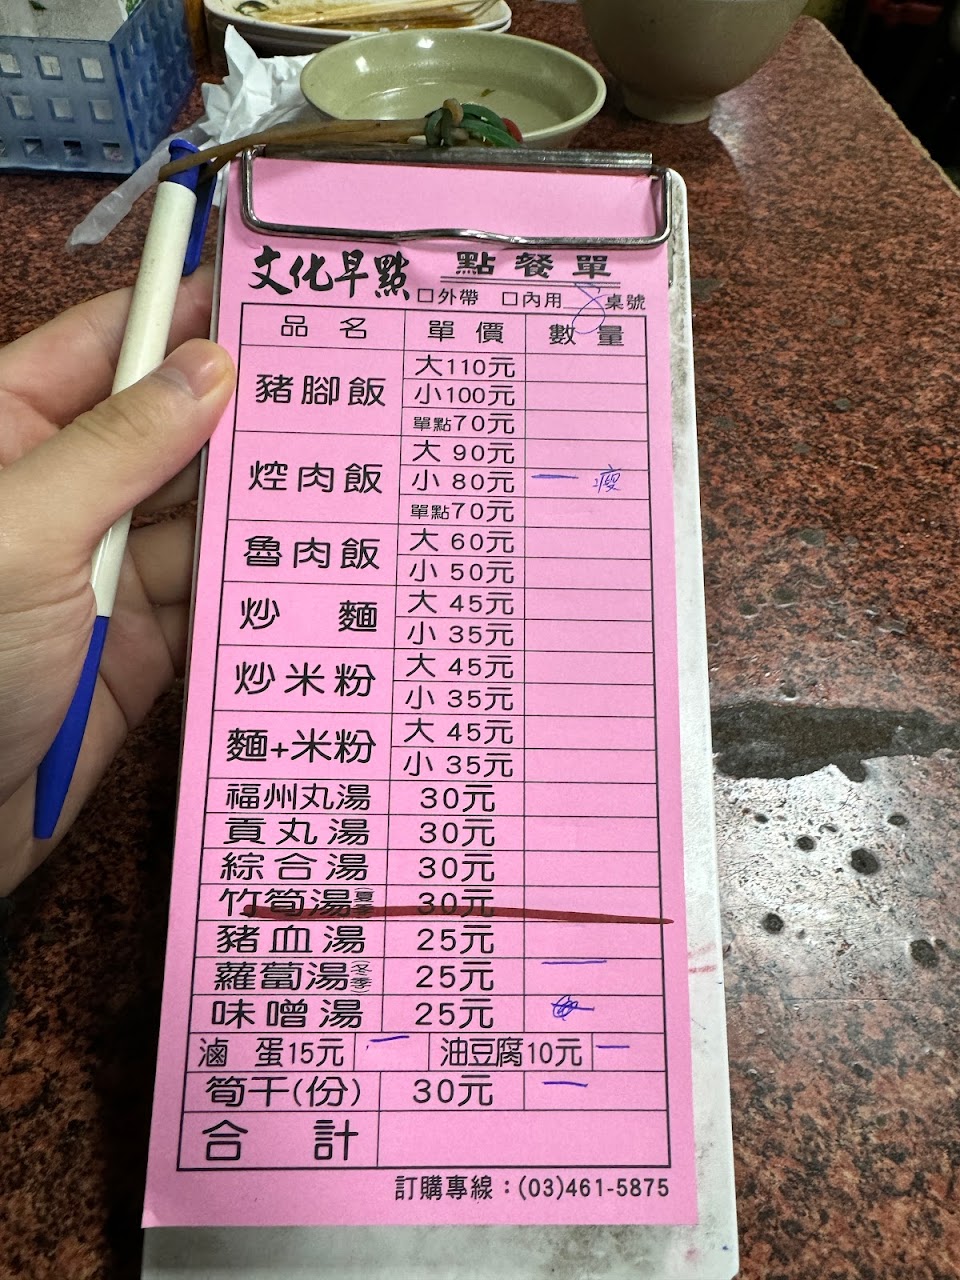 文化早點 點餐單
□外帶 □內用 8 桌號
品名 單價 數量
豬腳飯 大110元
小100元
單點70元
焢肉飯 大 90元
小 80元 一 瘦
單點70元
魯肉飯 大 60元
小 50元
炒麵 大 45元
小 35元
炒米粉 大 45元
小 35元
麵+米粉 大 45元
小 35元
福州丸湯 30元
貢丸湯 30元
綜合湯 30元
竹筍湯(夏季) 30元
豬血湯 25元
蘿蔔湯(冬季) 25元 一
味噌湯 25元
滷蛋15元 一 油豆腐10元 一
筍干(份) 30元 一
合計
訂購專線：(03)461-5875